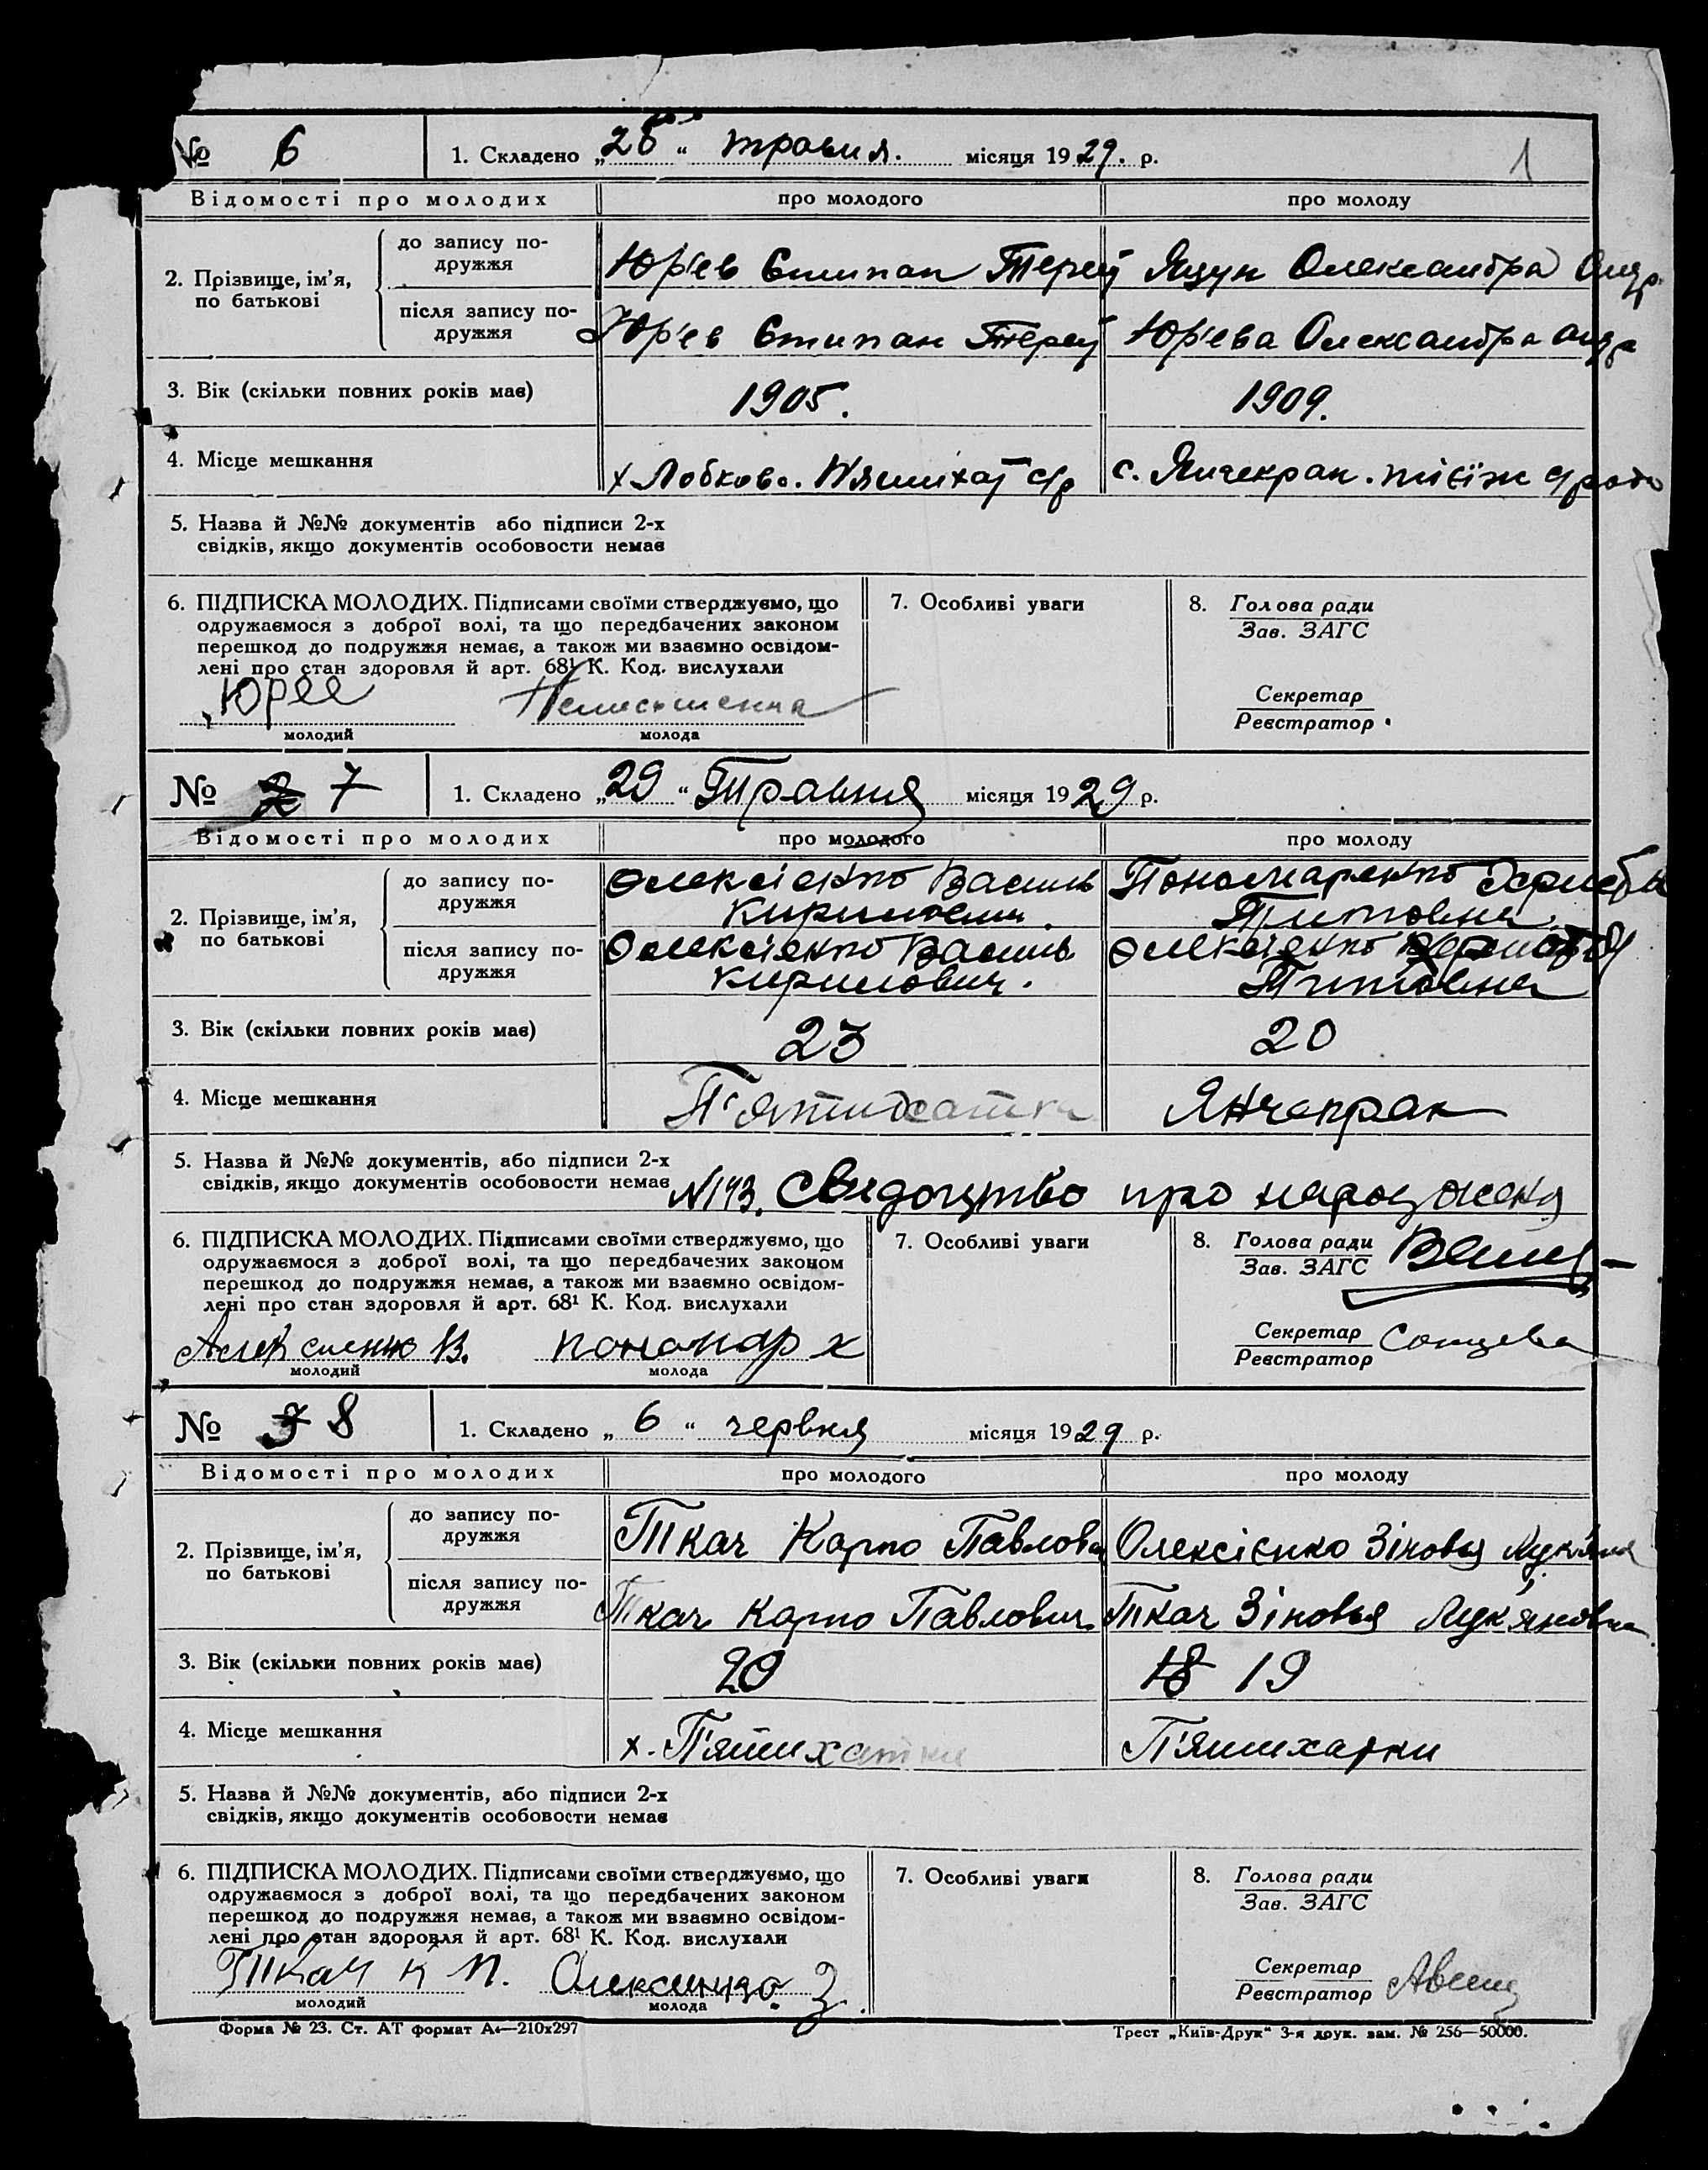 № 6
1. Складено „28“ травня. місяця 1929. р.
1
Відомості про молодих про молодого про молоду
2. Прізвище, ім'я, по батькові
до запису подружжя
Юр'єв Степан Терей Яцун Олександра Андр.
після запису подружжя
Юр'єв Степан Терей Юр'єва Олександра Андр
3. Вік (скільки повних років має) 1905. 1909.
4. Місце мешкання х Лобково. П'ятихат с/р с. Янчекрак. с/рада
5. Назва й №№ документів або підписи 2-х
свідків, якщо документів особовости немає
6. ПІДПИСКА МОЛОДИХ. Підписами своїми стверджуємо, що
одружаємося з доброї волі, та що передбачених законом
перешкод до подружжя немає, а також ми взаємно освідом-
лені про стан здоровля й арт. 68¹ К. Код. вислухали
Юрєв
молодий молода
7. Особливі уваги
8. Голова ради
Зав. ЗАГС
Секретар
Реєстратор
№ 2 7
1. Складено „29“ Травня місяця 1929 р.
Відомості про молодих про молодого про молоду
2. Прізвище, ім'я, по батькові
до запису подружжя
Олексієнко Василь Пономаренко
Кирилович. Титовна
після запису подружжя
Олексієнко Василь Олексієнко
Кирилович. Титовна
3. Вік (скільки повних років має) 23 20
4. Місце мешкання П'ятихатки Янчекрак
5. Назва й №№ документів, або підписи 2-х
свідків, якщо документів особовости немає
N 143. Свидоцтво про народження
6. ПІДПИСКА МОЛОДИХ. Підписами своїми стверджуємо, що
одружаємося з доброї волі, та що передбачених законом
перешкод до подружжя немає, а також ми взаємно освідом-
лені про стан здоровля й арт. 68¹ К. Код. вислухали
Алексієнко В. пономар х
молодий молода
7. Особливі уваги
8. Голова ради
Зав. ЗАГС
Секретар
Реєстратор
№ 3 8
1. Складено „6“ червня місяця 1929 р.
Відомості про молодих про молодого про молоду
2. Прізвище, ім'я, по батькові
до запису подружжя
Ткач Карпо Павлович Олексієнко Зіновья Лук'янов
після запису подружжя
Ткач Карпо Павлович Ткач Зіновья Лук'яновна
3. Вік (скільки повних років має) 20 18 19
4. Місце мешкання х. П'ятихатки П'ятихатки
5. Назва й №№ документів, або підписи 2-х
свідків, якщо документів особовости немає
6. ПІДПИСКА МОЛОДИХ. Підписами своїми стверджуємо, що
одружаємося з доброї волі, та що передбачених законом
перешкод до подружжя немає, а також ми взаємно освідом-
лені про стан здоровля й арт. 68¹ К. Код. вислухали
Ткач К П. Олексиенко З
молодий молода
7. Особливі уваги
8. Голова ради
Зав. ЗАГС
Секретар
Реєстратор
Форма № 23. Ст. АТ формат А₄—210х297
Трест „Київ-Друк“ 3-я друк. зам. № 256—50000.